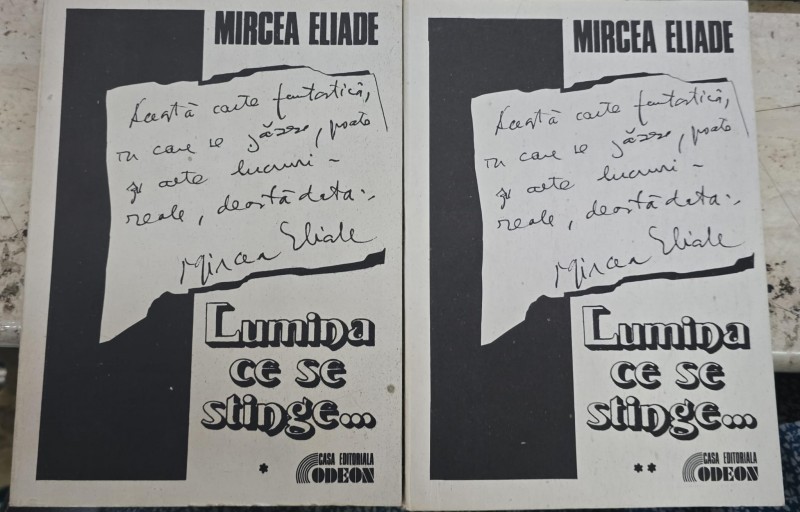 MIRCEA ELIADE
Această carte fantastică,
în care se găsesc, poate
și alte lucruri -
reale, deastădata:.
Mircea Eliade
Lumina
ce se
stinge...
*
CASA EDITORIALA
ODEON
MIRCEA ELIADE
Această carte fantastică,
în care se găsesc, poate
și alte lucruri -
reale, deastădata:.
Mircea Eliade
Lumina
ce se
stinge...
**
CASA EDITORIALA
ODEON